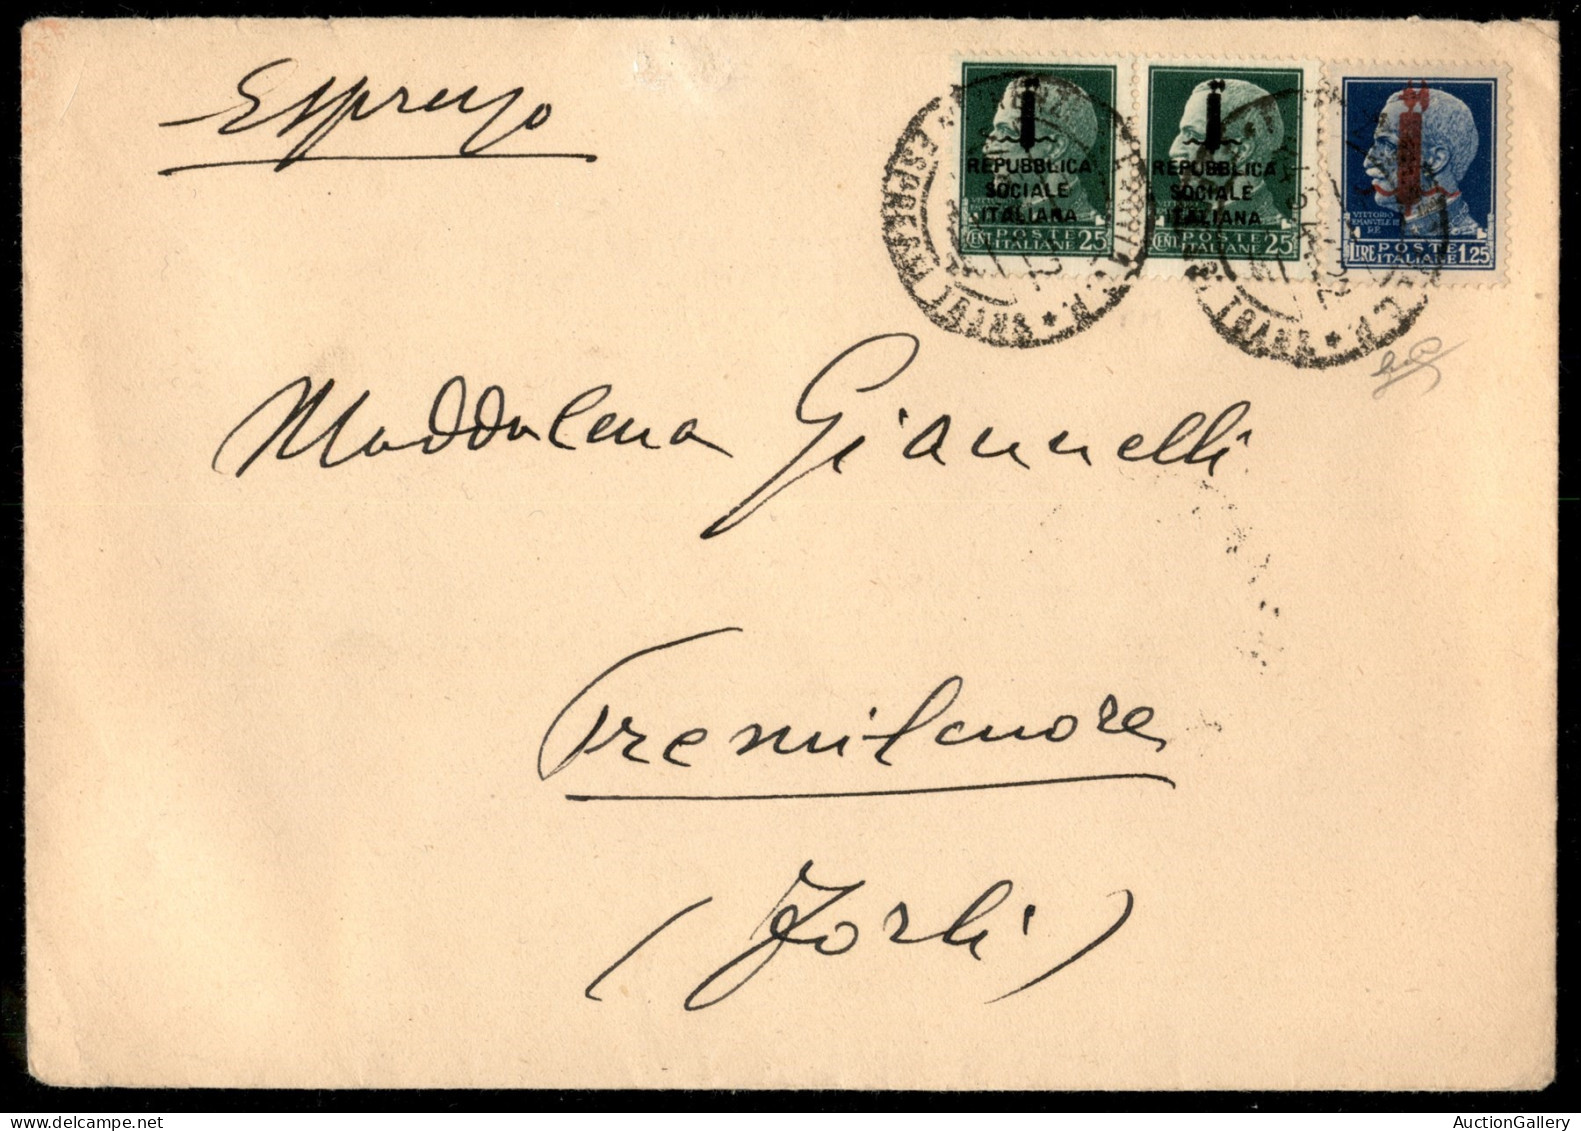 Espresso
REPUBBLICA
SOCIALE
ITALIANA
CENT POSTE ITALIANE 25
REPUBBLICA
SOCIALE
ITALIANA
CENT POSTE ITALIANE 25
VITTORIO
EMANUELE III
RE
LIRE POSTE ITALIANE 1.25
ESPRESSI
Maddalena Giannelli
Tremilcuore
(Forlì)
AuctionGallery